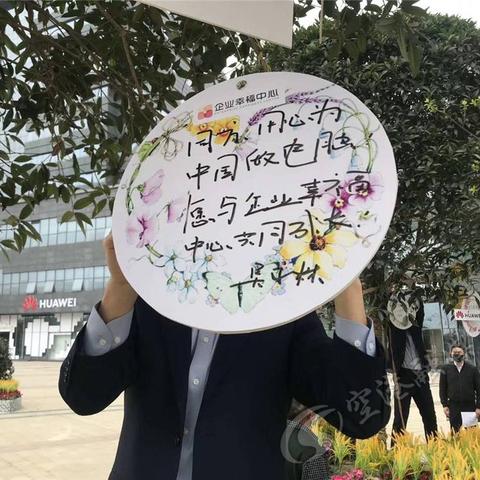 企业幸福中心
同方,用心为
中国做电脑
愿与企业幸福
中心共同成长
HUAWEI
HUAWEI
空港融